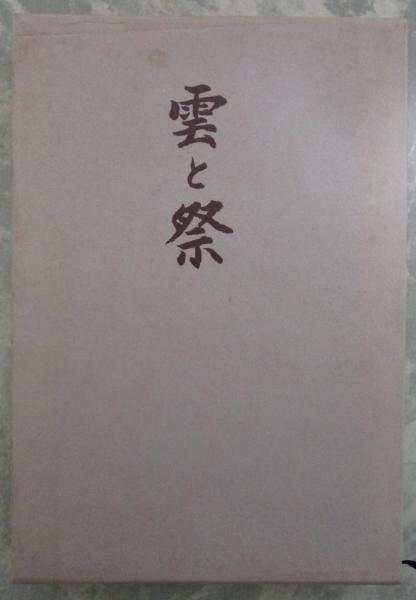 雲と祭